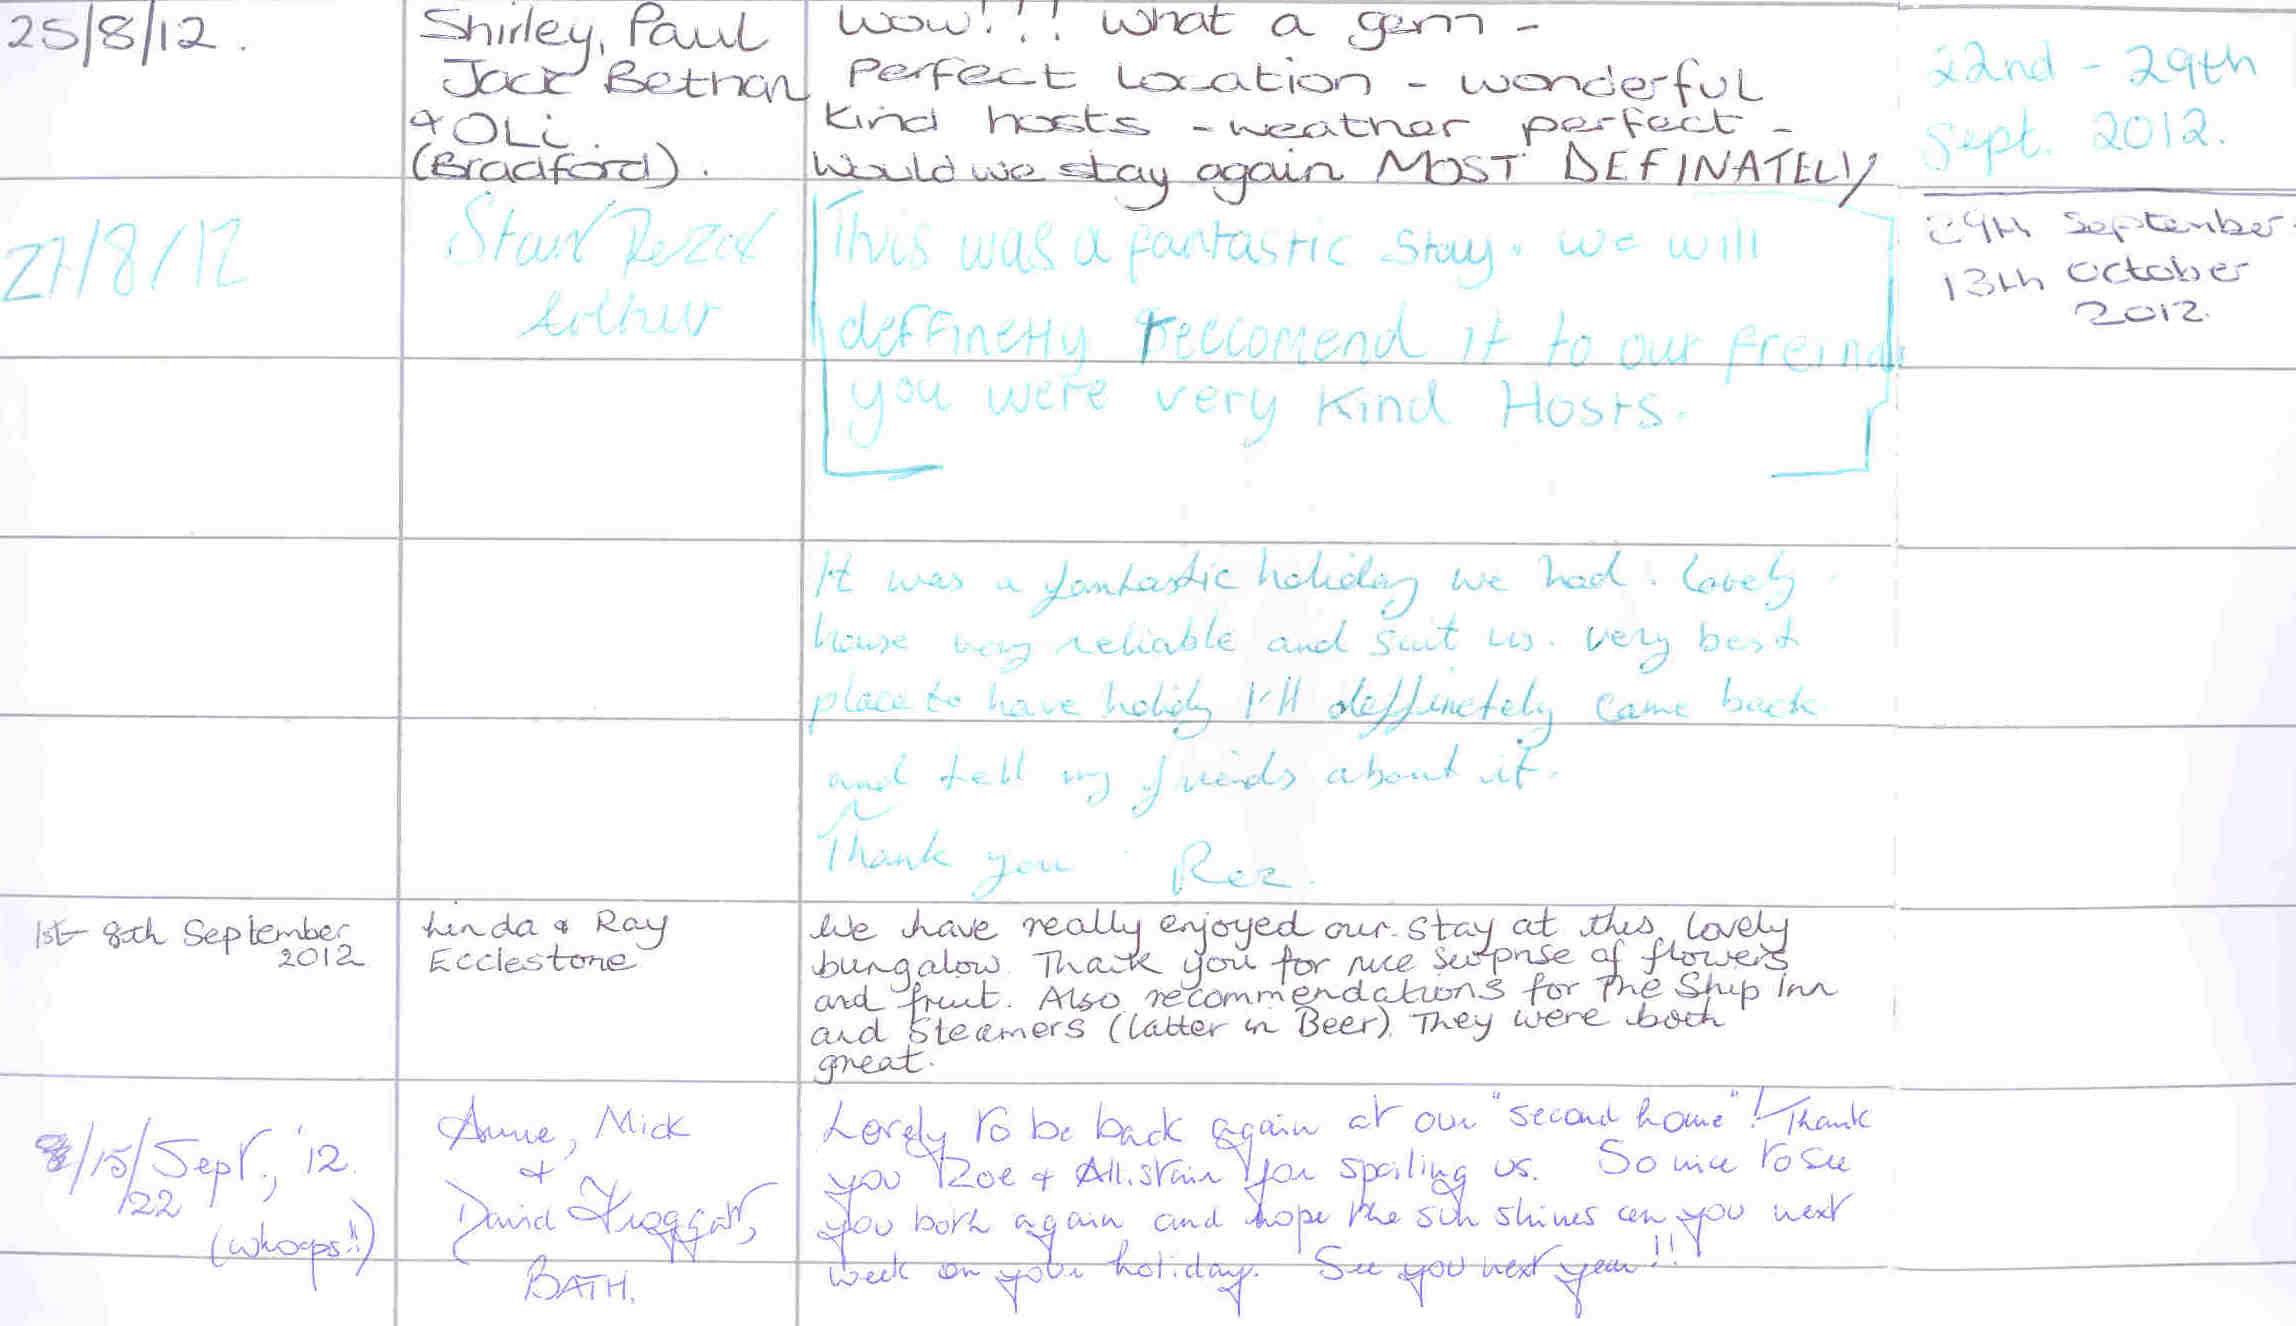 25/8/12.
Shirley, Paul
Jack Bethan
& OLi.
(Bradford).
Wow!!! What a gem -
Perfect Location - wonderful
Kind hosts - weather perfect -
Would we stay again MOST DEFINATELY
22nd - 29th
Sept. 2012.
27/8/12
Arthur
This was a fantastic Stay. We will
deffinetly reccomend it to our freind
you were very Kind Hosts.
29th September
13th October
2012.
It was a fantastic holiday we had. Lovely
house very reliable and suit us. very best
place to have holidy I'll deffinetely came back
and tell my friends about it.
Thank you Rez.
1st - 8th September
2012
Linda & Ray
Ecclestone
We have really enjoyed our stay at this lovely
bungalow. Thank you for nice surprise of flowers
and fruit. Also recommendations for The Ship Inn
and Steamers (latter in Beer). They were both
great.
8/15/Sept, '12.
/22
(whoops!!)
Anne, Mick
+
David Froggatt,
BATH.
Lovely to be back again at our "second home"! Thank
you Zoe & Allistair for spoiling us. So nice to see
you both again and hope the sun shines on you next
week on your holiday. See you next year!!